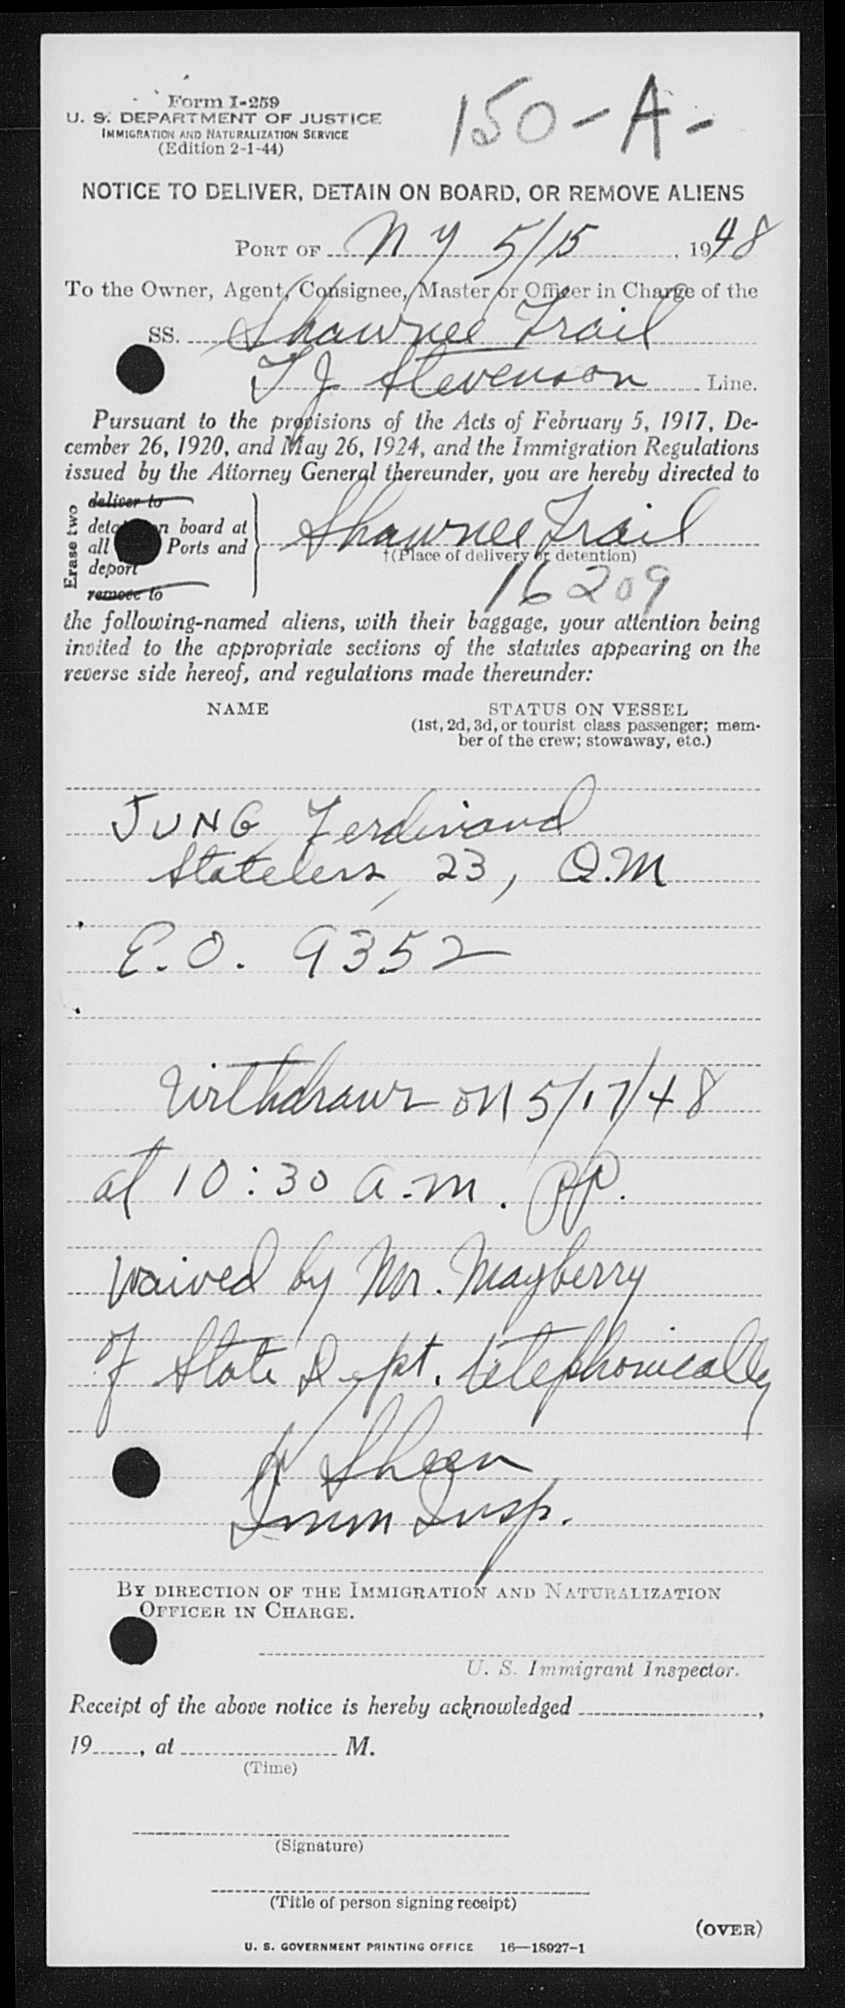 Form I-259
150-A-
U. S. DEPARTMENT OF JUSTICE
IMMIGRATION AND NATURALIZATION SERVICE
(Edition 2-1-44)
NOTICE TO DELIVER, DETAIN ON BOARD, OR REMOVE ALIENS
PORT OF N Y 5/15, 1948
To the Owner, Agent, Consignee, Master or Officer in Charge of the
SS. Shawnee Trail
T J Stevenson Line.
Pursuant to the provisions of the Acts of February 5, 1917, De-
cember 26, 1920, and May 26, 1924, and the Immigration Regulations
issued by the Attorney General thereunder, you are hereby directed to
Erase two
deliver to
detain on board at
all Ports and
deport
remove to
Shawnee Trail
†(Place of delivery or detention)
16209
the following-named aliens, with their baggage, your attention being
invited to the appropriate sections of the statutes appearing on the
reverse side hereof, and regulations made thereunder:
NAME STATUS ON VESSEL
(1st, 2d, 3d, or tourist class passenger; mem-
ber of the crew; stowaway, etc.)
JUNG Ferdinand
Stateless, 23, Q.M
E.O. 9352
Withdrawn on 5/17/48
at 10:30 a.m. PP.
waived by Mr. Mayberry
of State Dept. telephonically
Sheen
Imm Insp.
BY DIRECTION OF THE IMMIGRATION AND NATURALIZATION
OFFICER IN CHARGE.
U. S. Immigrant Inspector.
Receipt of the above notice is hereby acknowledged ,
19, at M.
(Time)
(Signature)
(Title of person signing receipt)
(OVER)
U. S. GOVERNMENT PRINTING OFFICE 16—18927-1